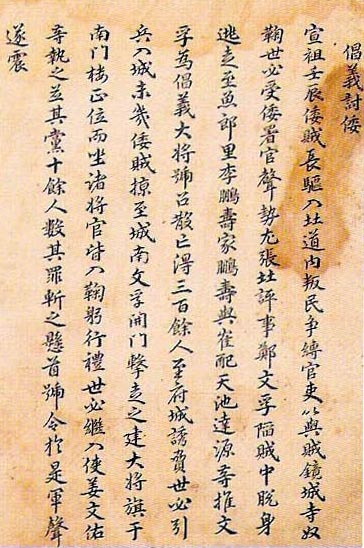 倡義討倭
宣祖壬辰倭賊長驅入北道內叛民爭縛官吏以與賊鏡城寺奴
鞠世必受倭署官聲勢尤張北評事鄭文孚陷賊中脫身
逃走至魚郎里李鵬壽家鵬壽與崔配天池達源等推文
孚為倡義大將號召散亡得三百餘人至府城誘責世必引
兵入城未幾倭賊掠至城南文孚開門擊走之建大將旗于
南門樓正位而坐諸將官皆入鞠躬行禮世必繼入使姜文佑
等執之並其黨十餘人數其罪斬之懸首號令於是軍聲
遂震